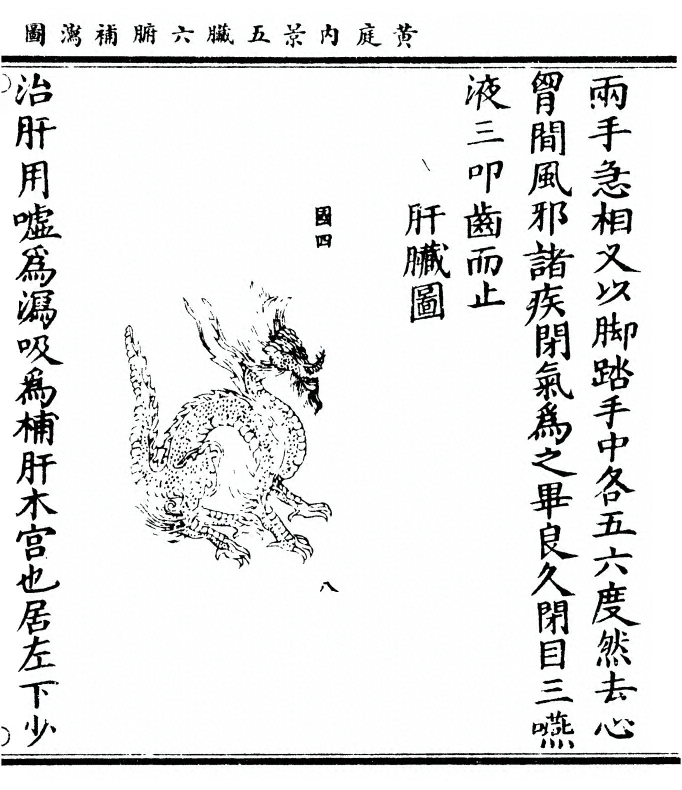 黃庭內景五臟六腑補瀉圖
兩手急相叉以脚踏手中各五六度然去心
胷間風邪諸疾閉氣爲之畢良久閉目三嚥
液三叩齒而止
肝臟圖
圖四
八
治肝用噓爲瀉吸爲補肝木宮也居左下少